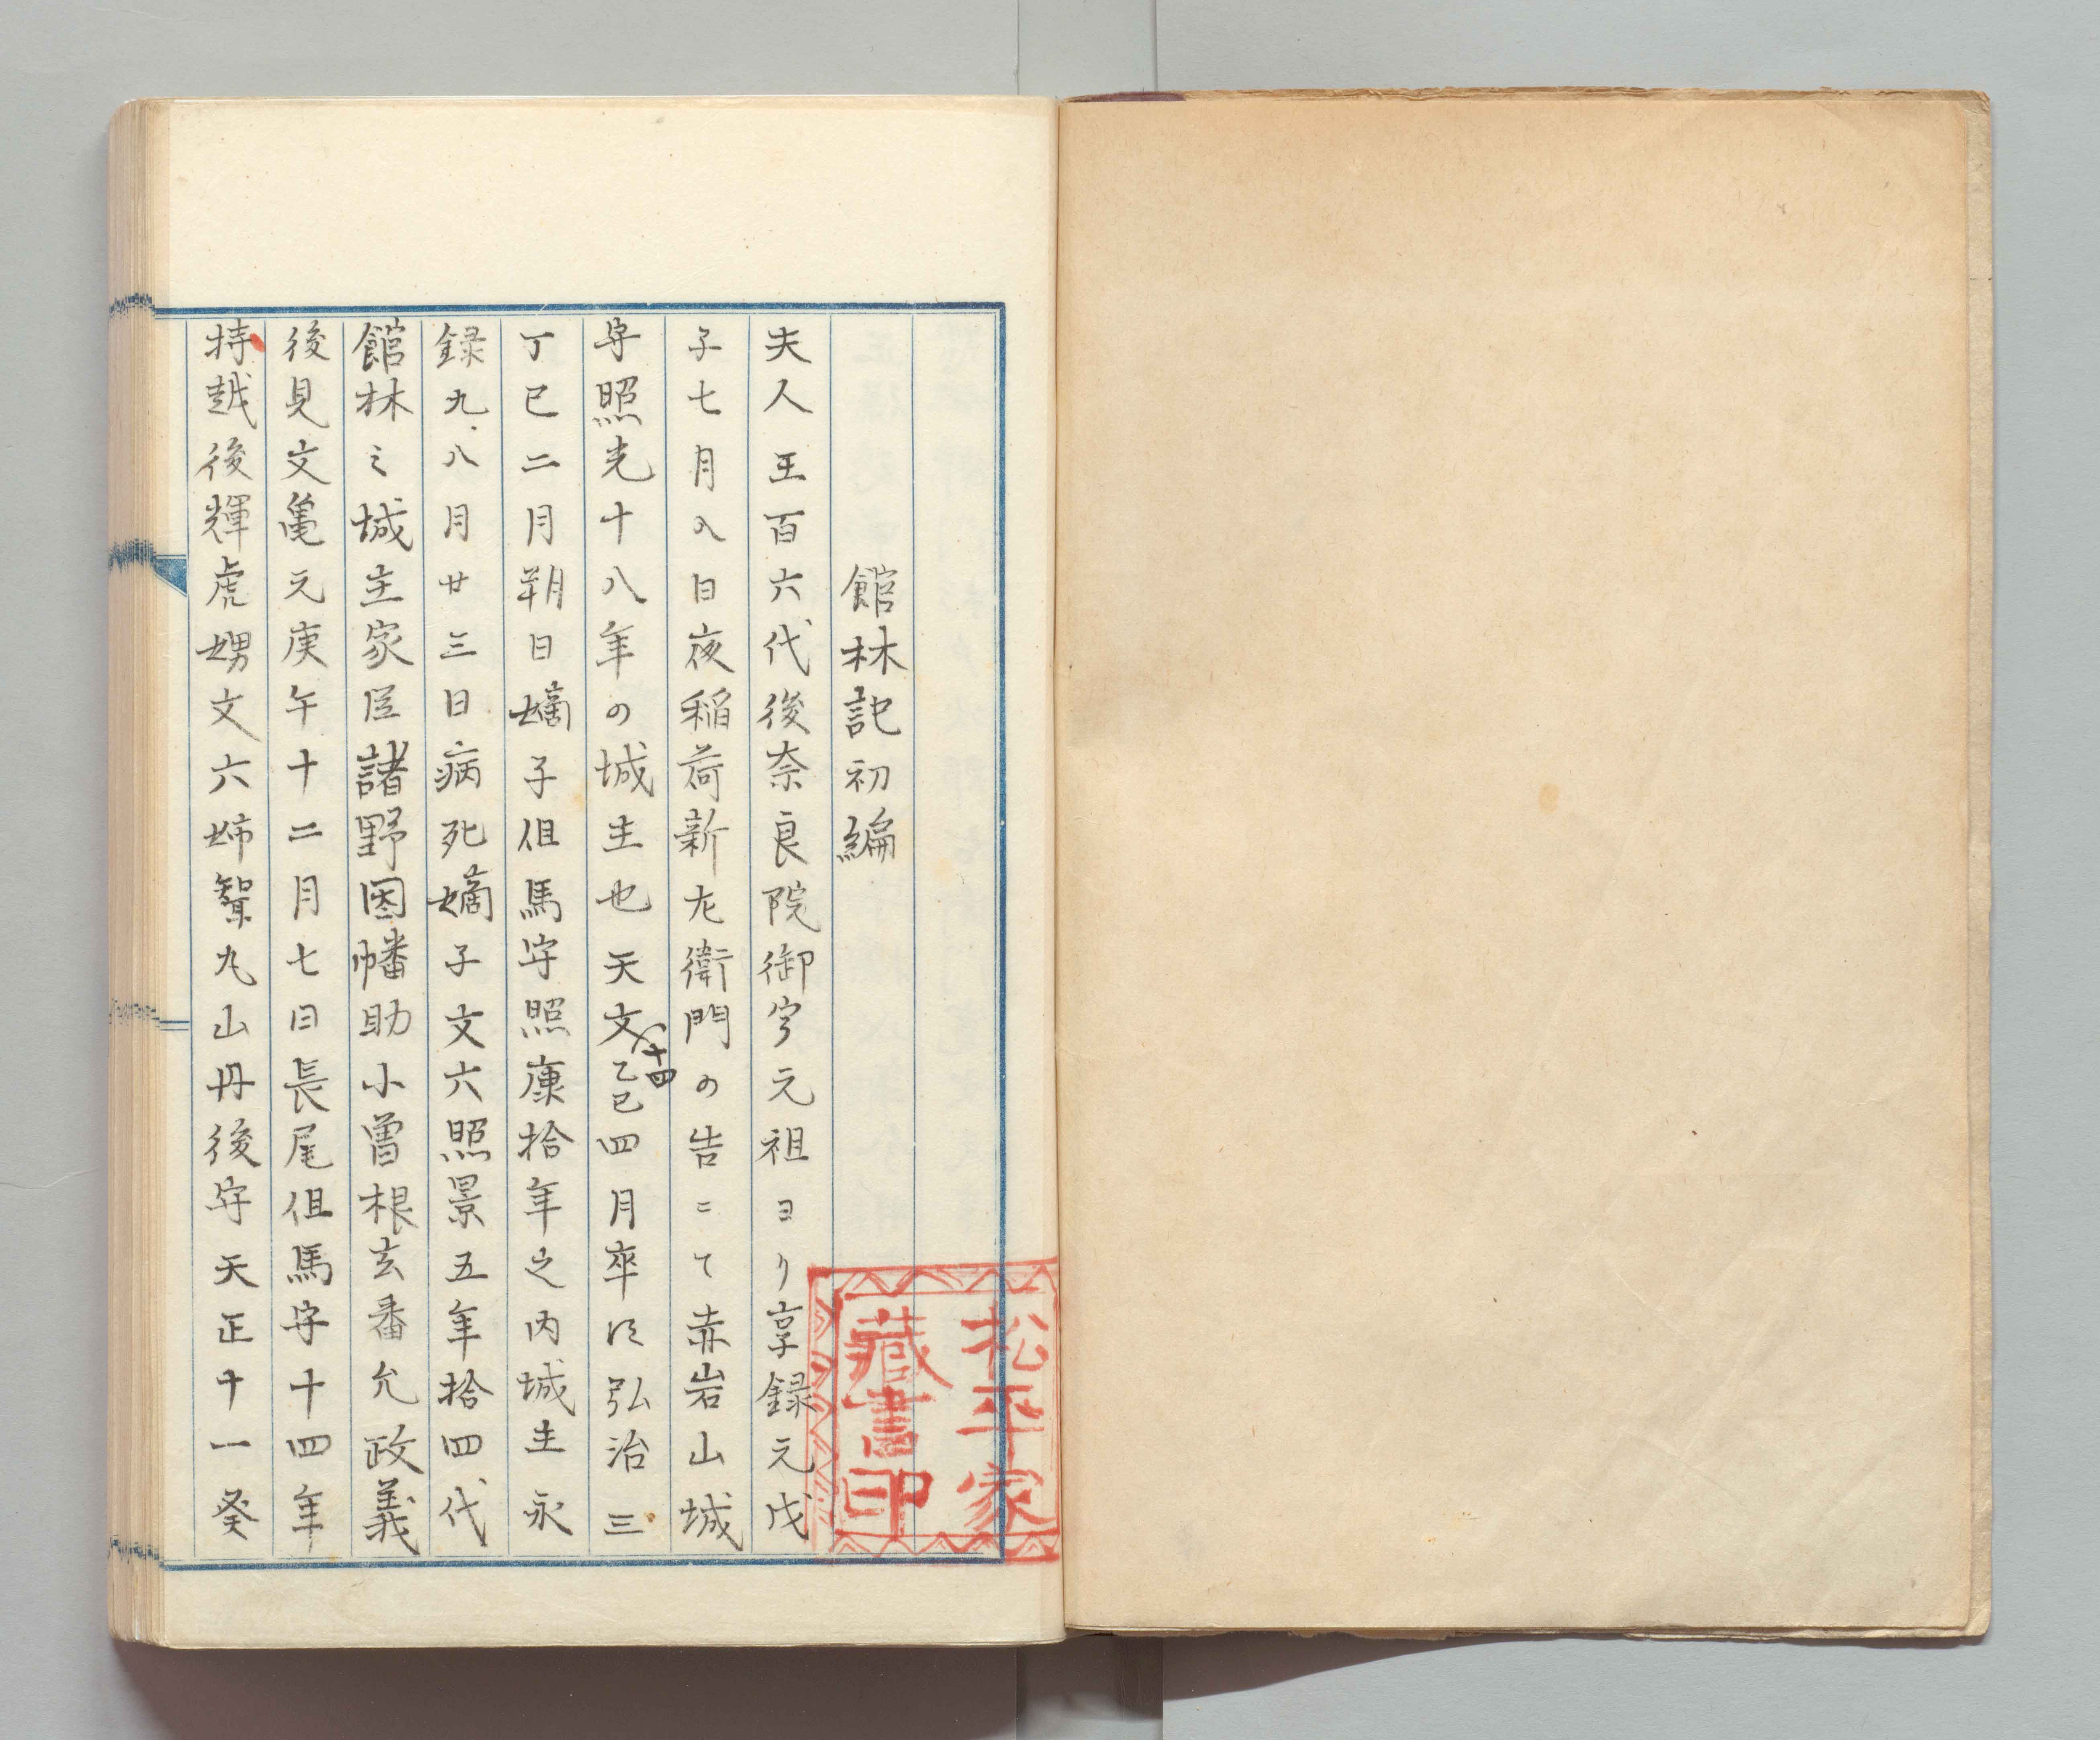 館林記初編
夫人王百六代後奈良院御宇元祖ヨリ享録元戊
子七月八日夜稲荷新左衛門の告ニて赤岩山城
守照光十八年の城主也天文十四乙巳四月卒ス弘治三
丁巳二月朔日嫡子但馬守照康拾年之内城主永
録九八月廿三日病死嫡子文六照景五年拾四代
館林之城主家臣諸野因幡助小曽根玄番允政義
後見文亀元庚午十二月七日長尾但馬守十四年
持越後輝虎甥文六姉聟丸山丹後守天正十一癸
松平家
蔵書印